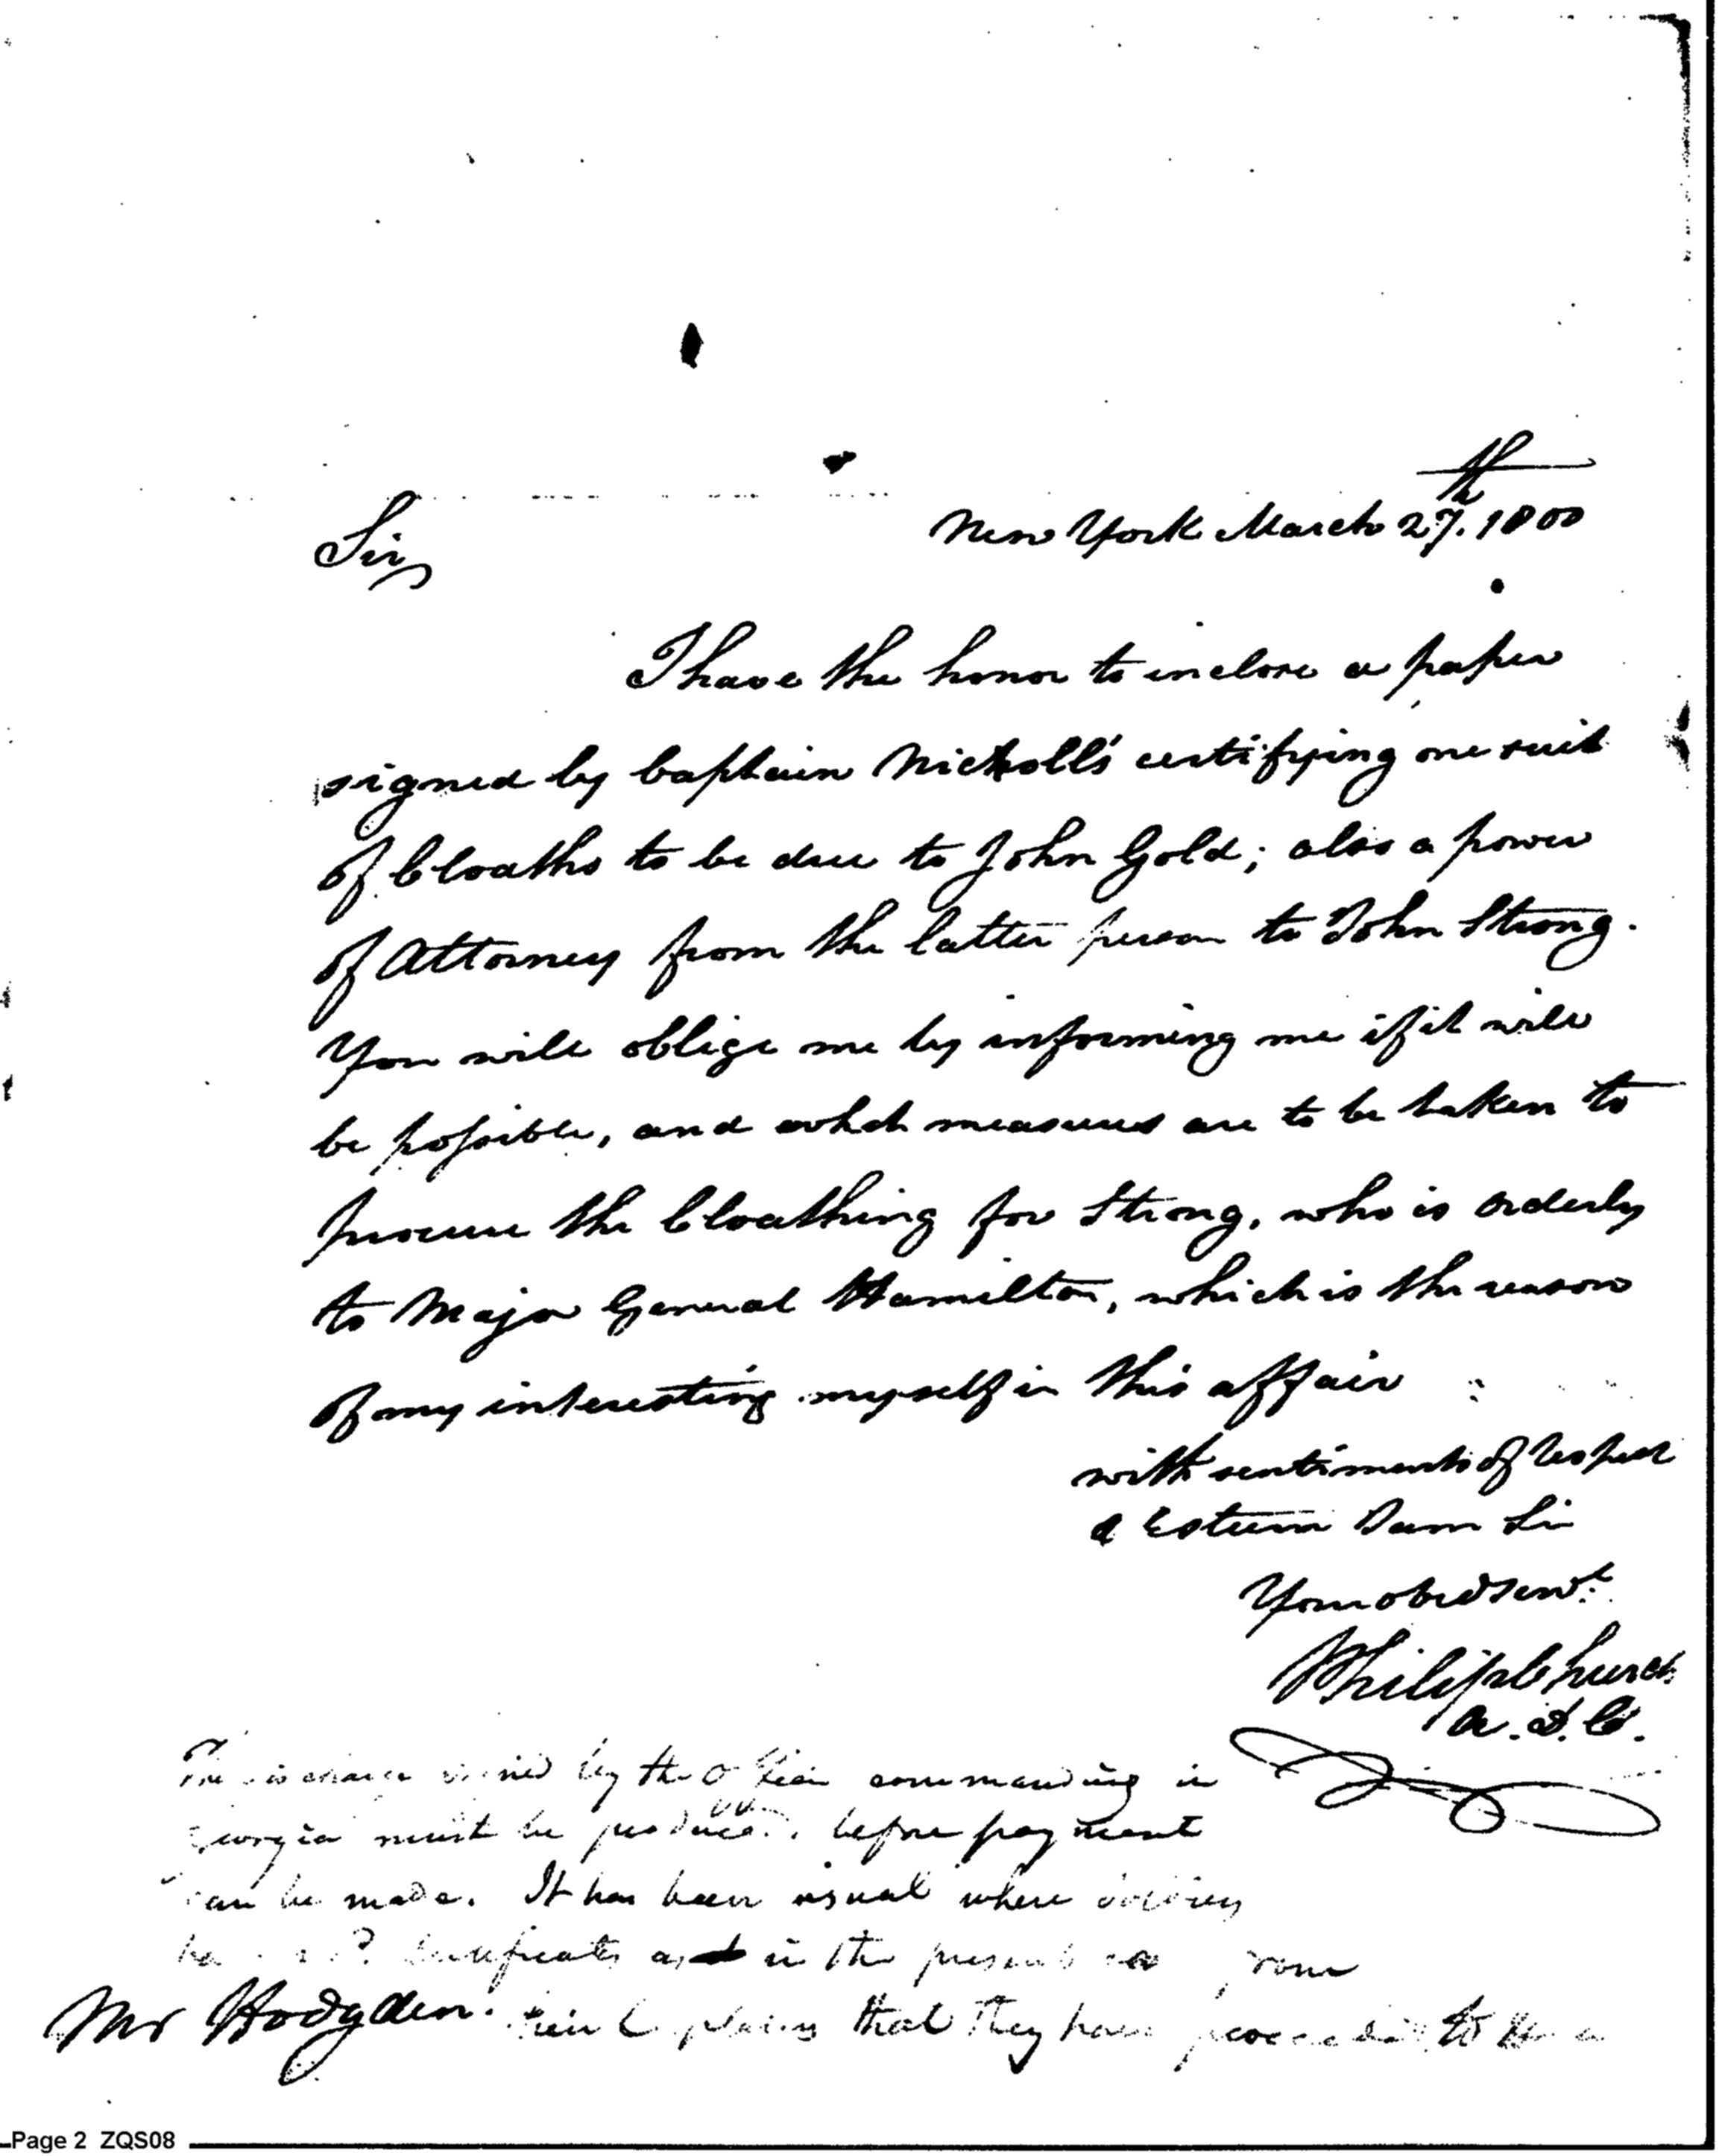 New York March 27.th 1800
Sir,
I have the honor to inclose a paper
signed by Captain Nicholl's certifying one suit
of Cloaths to be due to John Gold; also a power
of Attorney from the latter person to John Strong.
You will oblige me by informing me if it will
be possible, and which measures are to be taken to
procure the Cloathing for Strong, who is orderly
to Major General Hamilton, which is the reason
of my interesting myself in this affair
with sentiments of respect
& Esteem I am Sir
Your obed servt.
Philip Church
A. D. C.
The discharge signed by the Officer commanding in
Georgia must be produced before payment
can be made. It has been usual where soldiers
Certificates as in the present from
Mr Hodgden.
their Captains that they have proceeded to the
Page 2 ZQS08